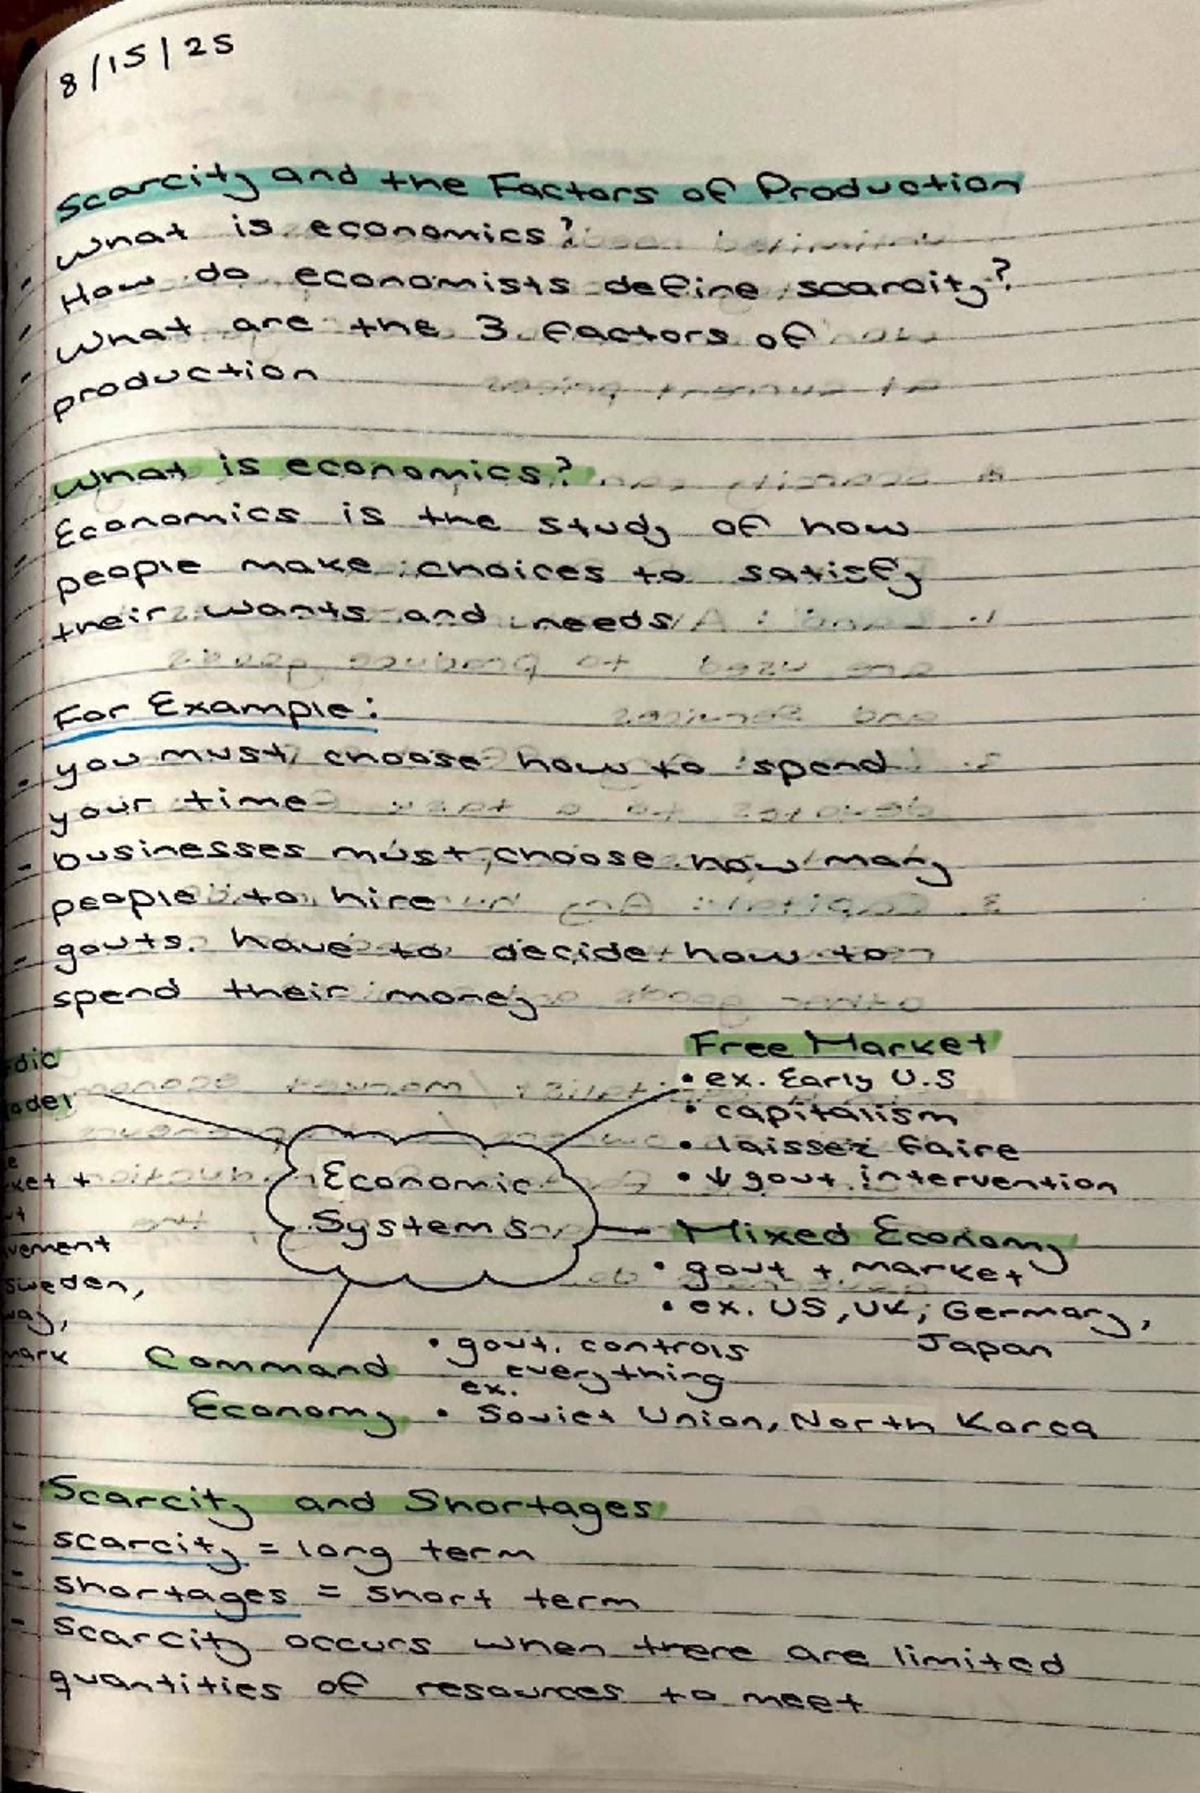 8/15/25
Scarcity and the Factors of Production
- What is economics?
- How do economists define scarcity?
- What are the 3 factors of
production
What is economics?
- Economics is the study of how
people make choices to satisfy
their wants and needs
For Example:
- you must choose how to spend
your time
- businesses must choose how many
people to hire
- govts. have to decide how to
spend their money
Economic
Systems
Free Market
• ex. Early U.S
• capitalism
• laissez faire
• ↓ govt. intervention
Mixed Economy
• govt + market
• ex. US, UK, Germany,
Japan
dic
odel
ket +
vement
Sweden,
way,
mark
Command
Economy
• govt. controls
everything
ex.
• Soviet Union, North Korea
Scarcity and Shortages
- scarcity = long term
- shortages = short term
- Scarcity occurs when there are limited
quantities of resources to meet